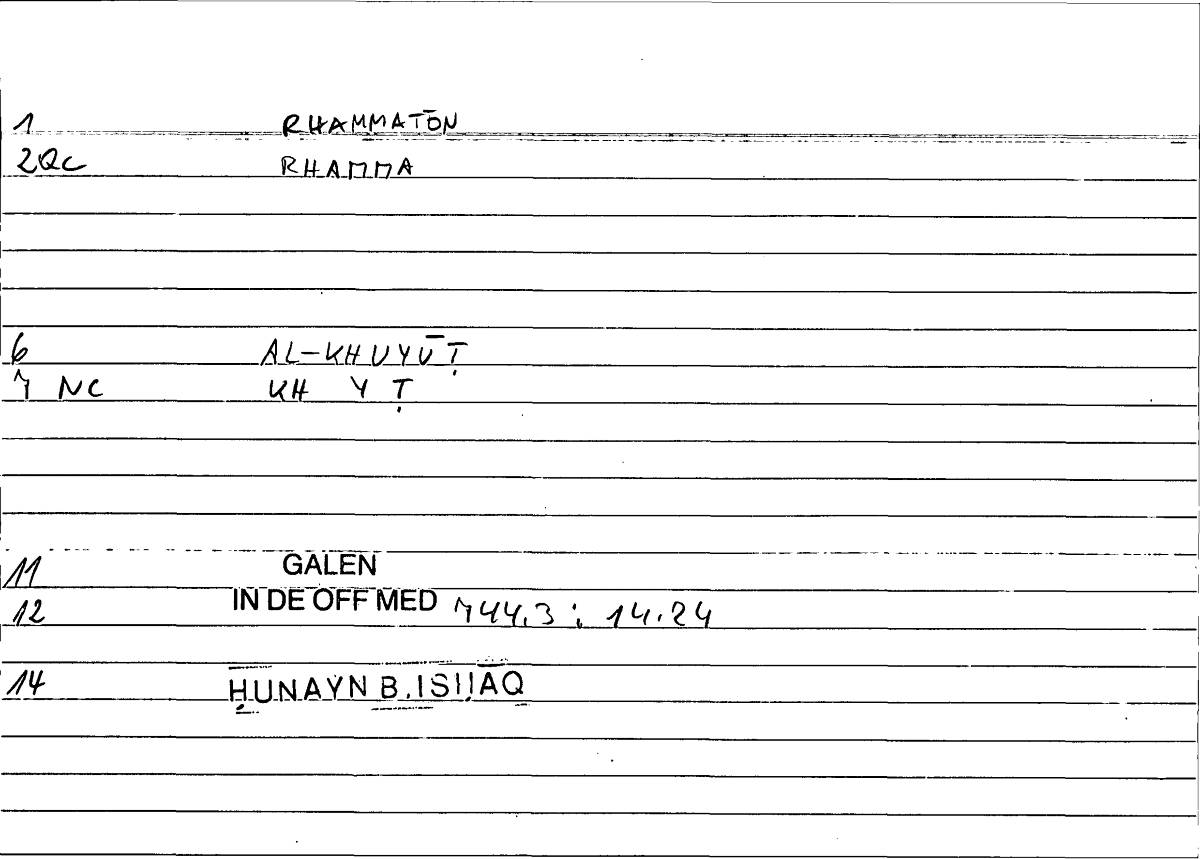 1 RHAMMATŌN
2QC RHAMMA
6 AL-KHUYŪṬ
7 NC KH Y Ṭ
11 GALEN
12 IN DE OFF MED 744.3 ; 14.24
14 ḤUNAYN B. ISḤĀQ